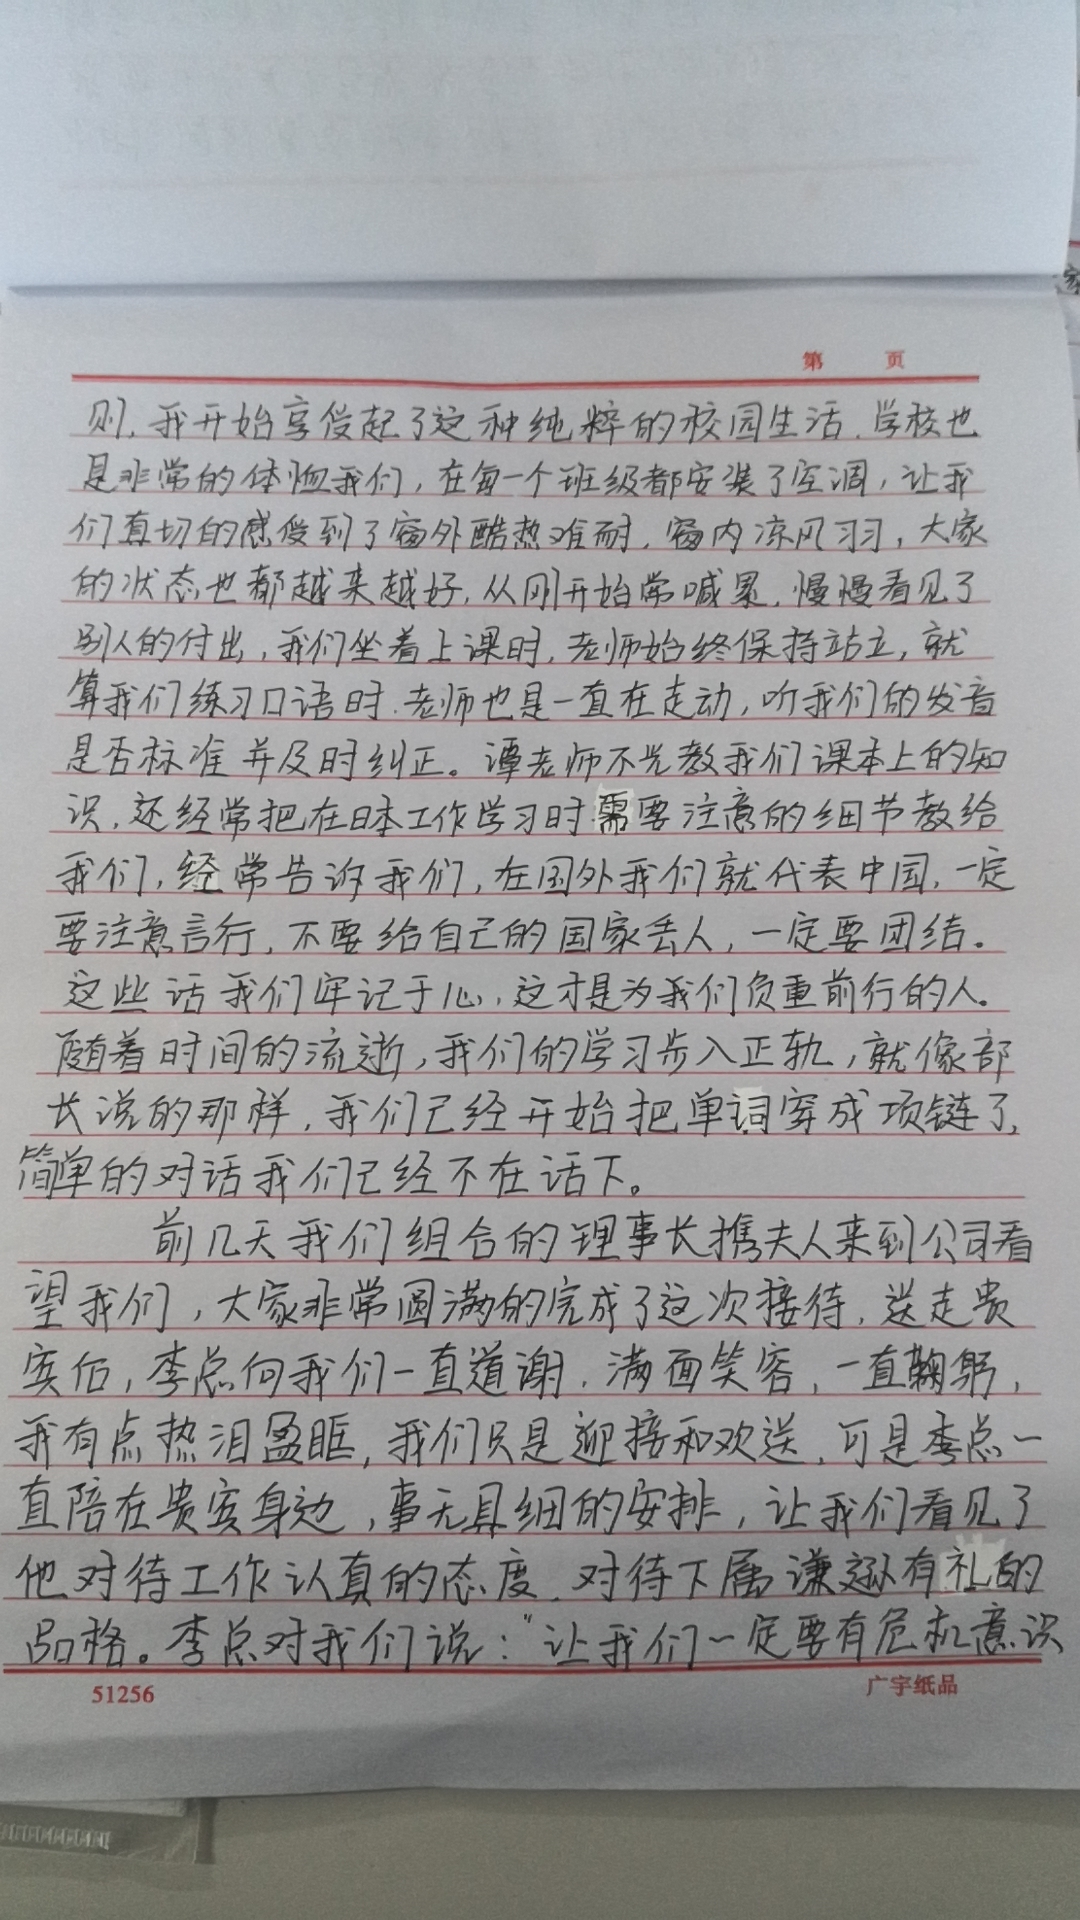 第 页
则，我开始享受起了这种纯粹的校园生活，学校也
是非常的体恤我们，在每一个班级都安装了空调，让我
们真切的感受到了窗外酷热难耐，窗内凉风习习，大家
的状态也都越来越好，从刚开始常喊累，慢慢看见了
别人的付出，我们坐着上课时，老师始终保持站立，就
算我们练习口语时，老师也是一直在走动，听我们的发音
是否标准并及时纠正。谭老师不光教我们课本上的知
识，还经常把在日本工作学习时需要注意的细节教给
我们，经常告诉我们，在国外我们就代表中国，一定
要注意言行，不要给自己的国家丢人，一定要团结。
这些话我们牢记于心，这才是为我们负重前行的人。
随着时间的流逝，我们的学习步入正轨，就像部
长说的那样，我们已经开始把单词穿成项链了，
简单的对话我们已经不在话下。
前几天我们组合的理事长携夫人来到公司看
望我们，大家非常圆满的完成了这次接待，送走贵
宾后，李总向我们一直道谢，满面笑容，一直鞠躬，
我有点热泪盈眶，我们只是迎接和欢送，可是李总一
直陪在贵宾身边，事无具细的安排，让我们看见了
他对待工作认真的态度，对待下属谦逊有礼的
品格。李总对我们说："让我们一定要有危机意识
51256 广宇纸品